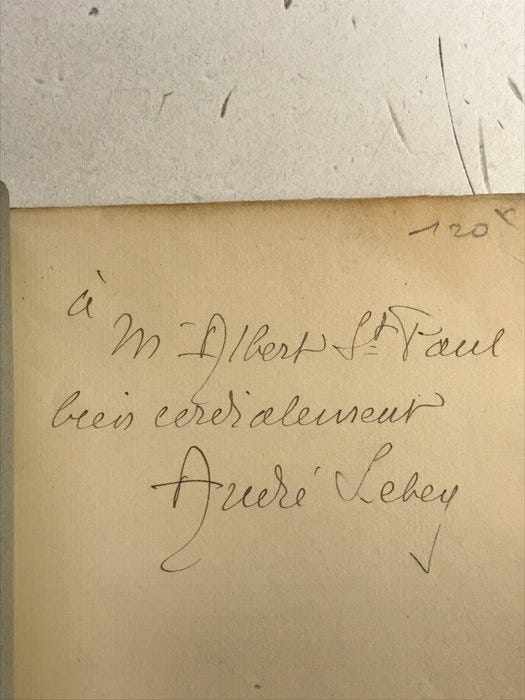 120
à
M Albert St Paul
bien cordialement
André Lebey